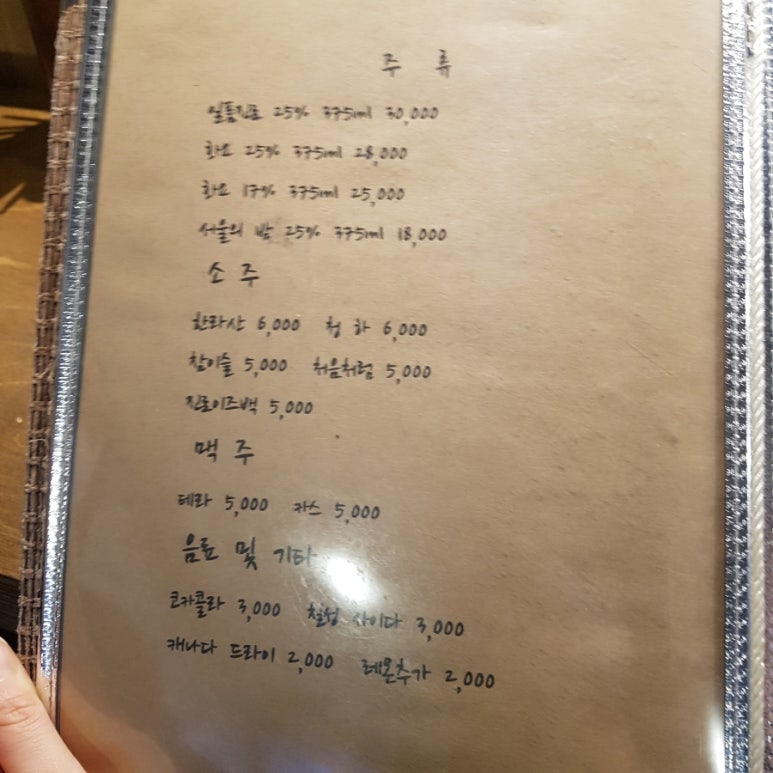 주 류
일품진로 25% 375ml 30,000
화요 25% 375ml 28,000
화요 17% 375ml 25,000
서울의 밤 25% 375ml 18,000
소 주
한라산 6,000 청하 6,000
참이슬 5,000 처음처럼 5,000
진로이즈백 5,000
맥 주
테라 5,000 카스 5,000
음료 및 기타
코카콜라 3,000 칠성 사이다 3,000
캐나다 드라이 2,000 레몬추가 2,000